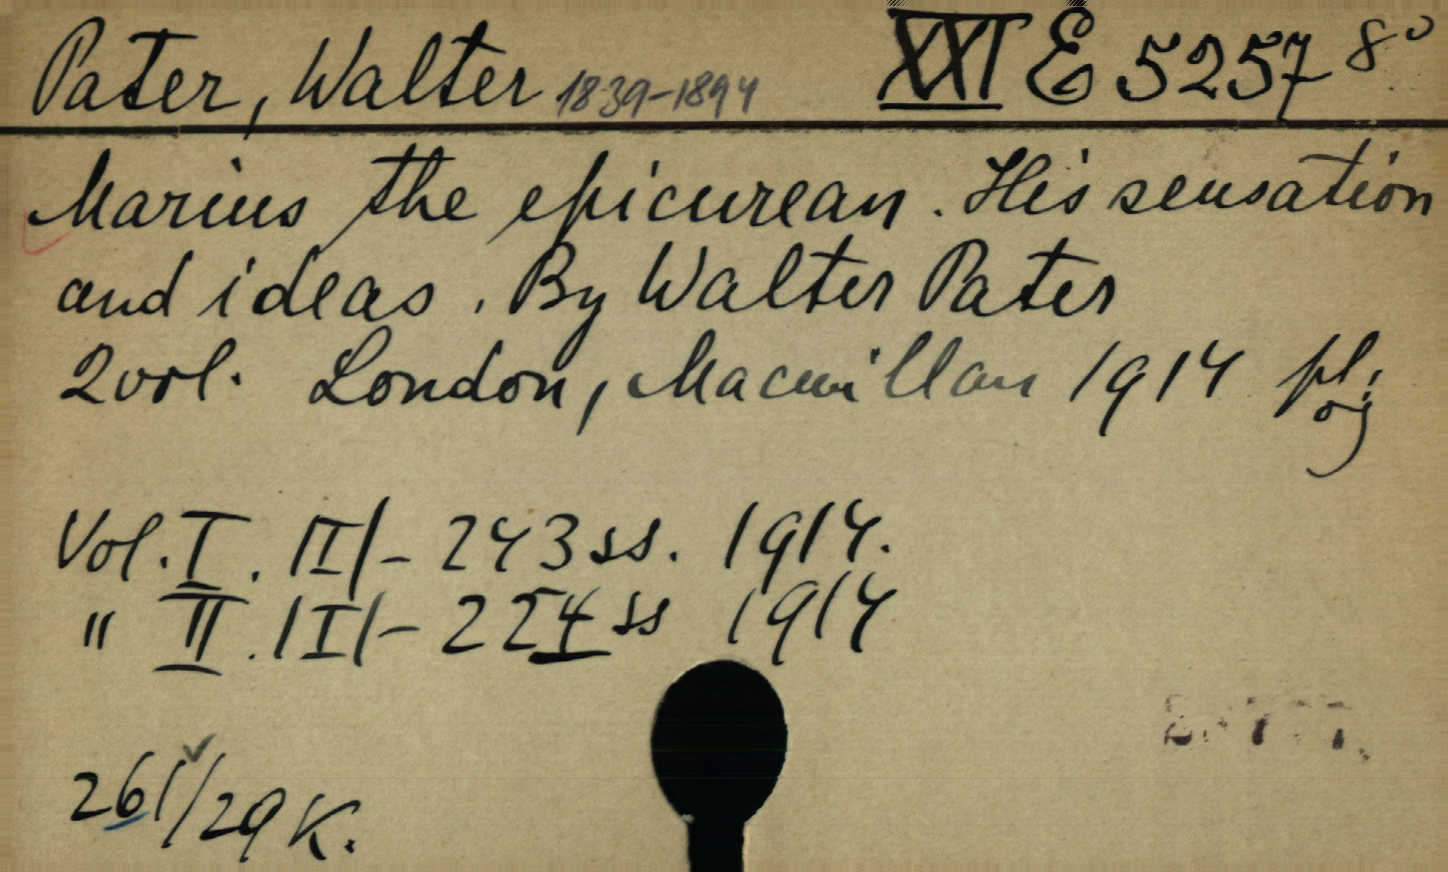 Pater, Walter 1839-1894 XXI E 5257 8°
Marius the epicurean. His sensation
and ideas. By Walter Pater
2 vol. London, Macmillan 1914 pl.
Vol. I. /I/- 243 ss. 1914.
" II. /I/- 224 ss 1914
261/29 K.